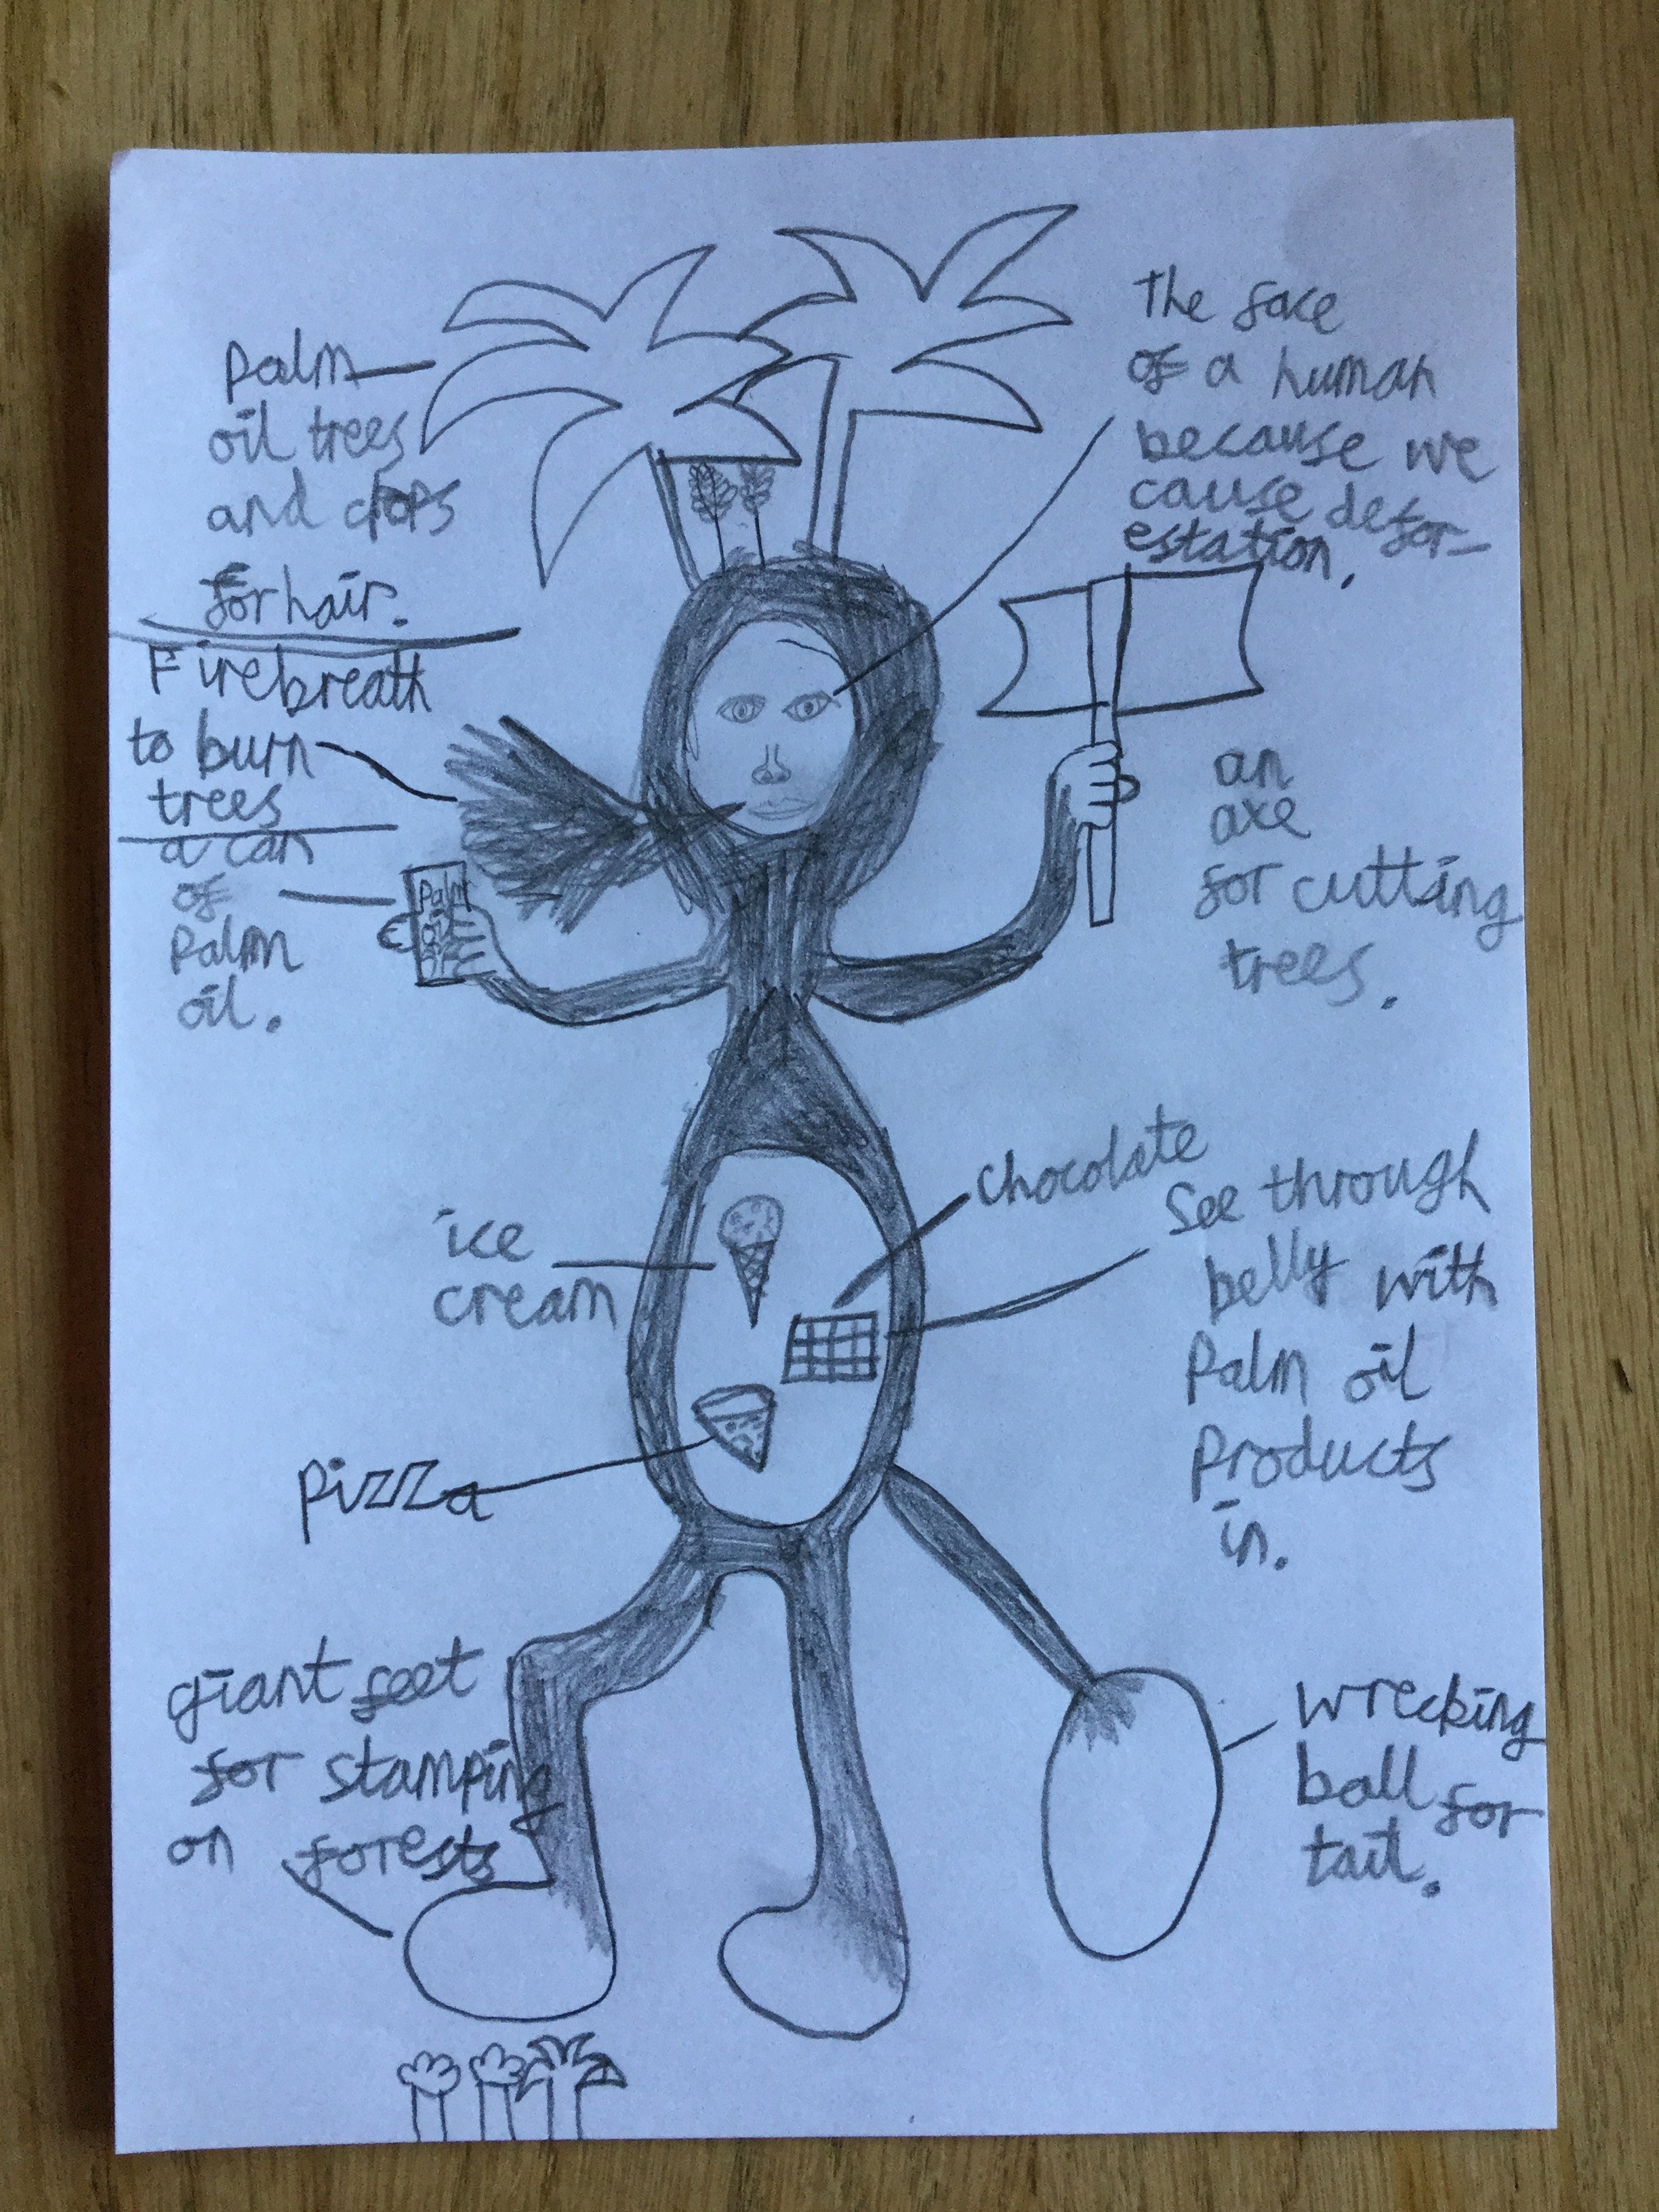 Palm
oil trees
and crops
for hair.
The face
of a human
because we
cause defor-
estation.
Firebreath
to burn
trees
a can
of
Palm
oil.
Palm
oil
an
axe
for cutting
trees.
chocolate
See through
belly with
Palm oil
Products
in.
ice
cream
Pizza
giant feet
for stamping
on forests
wrecking
ball for
tail.